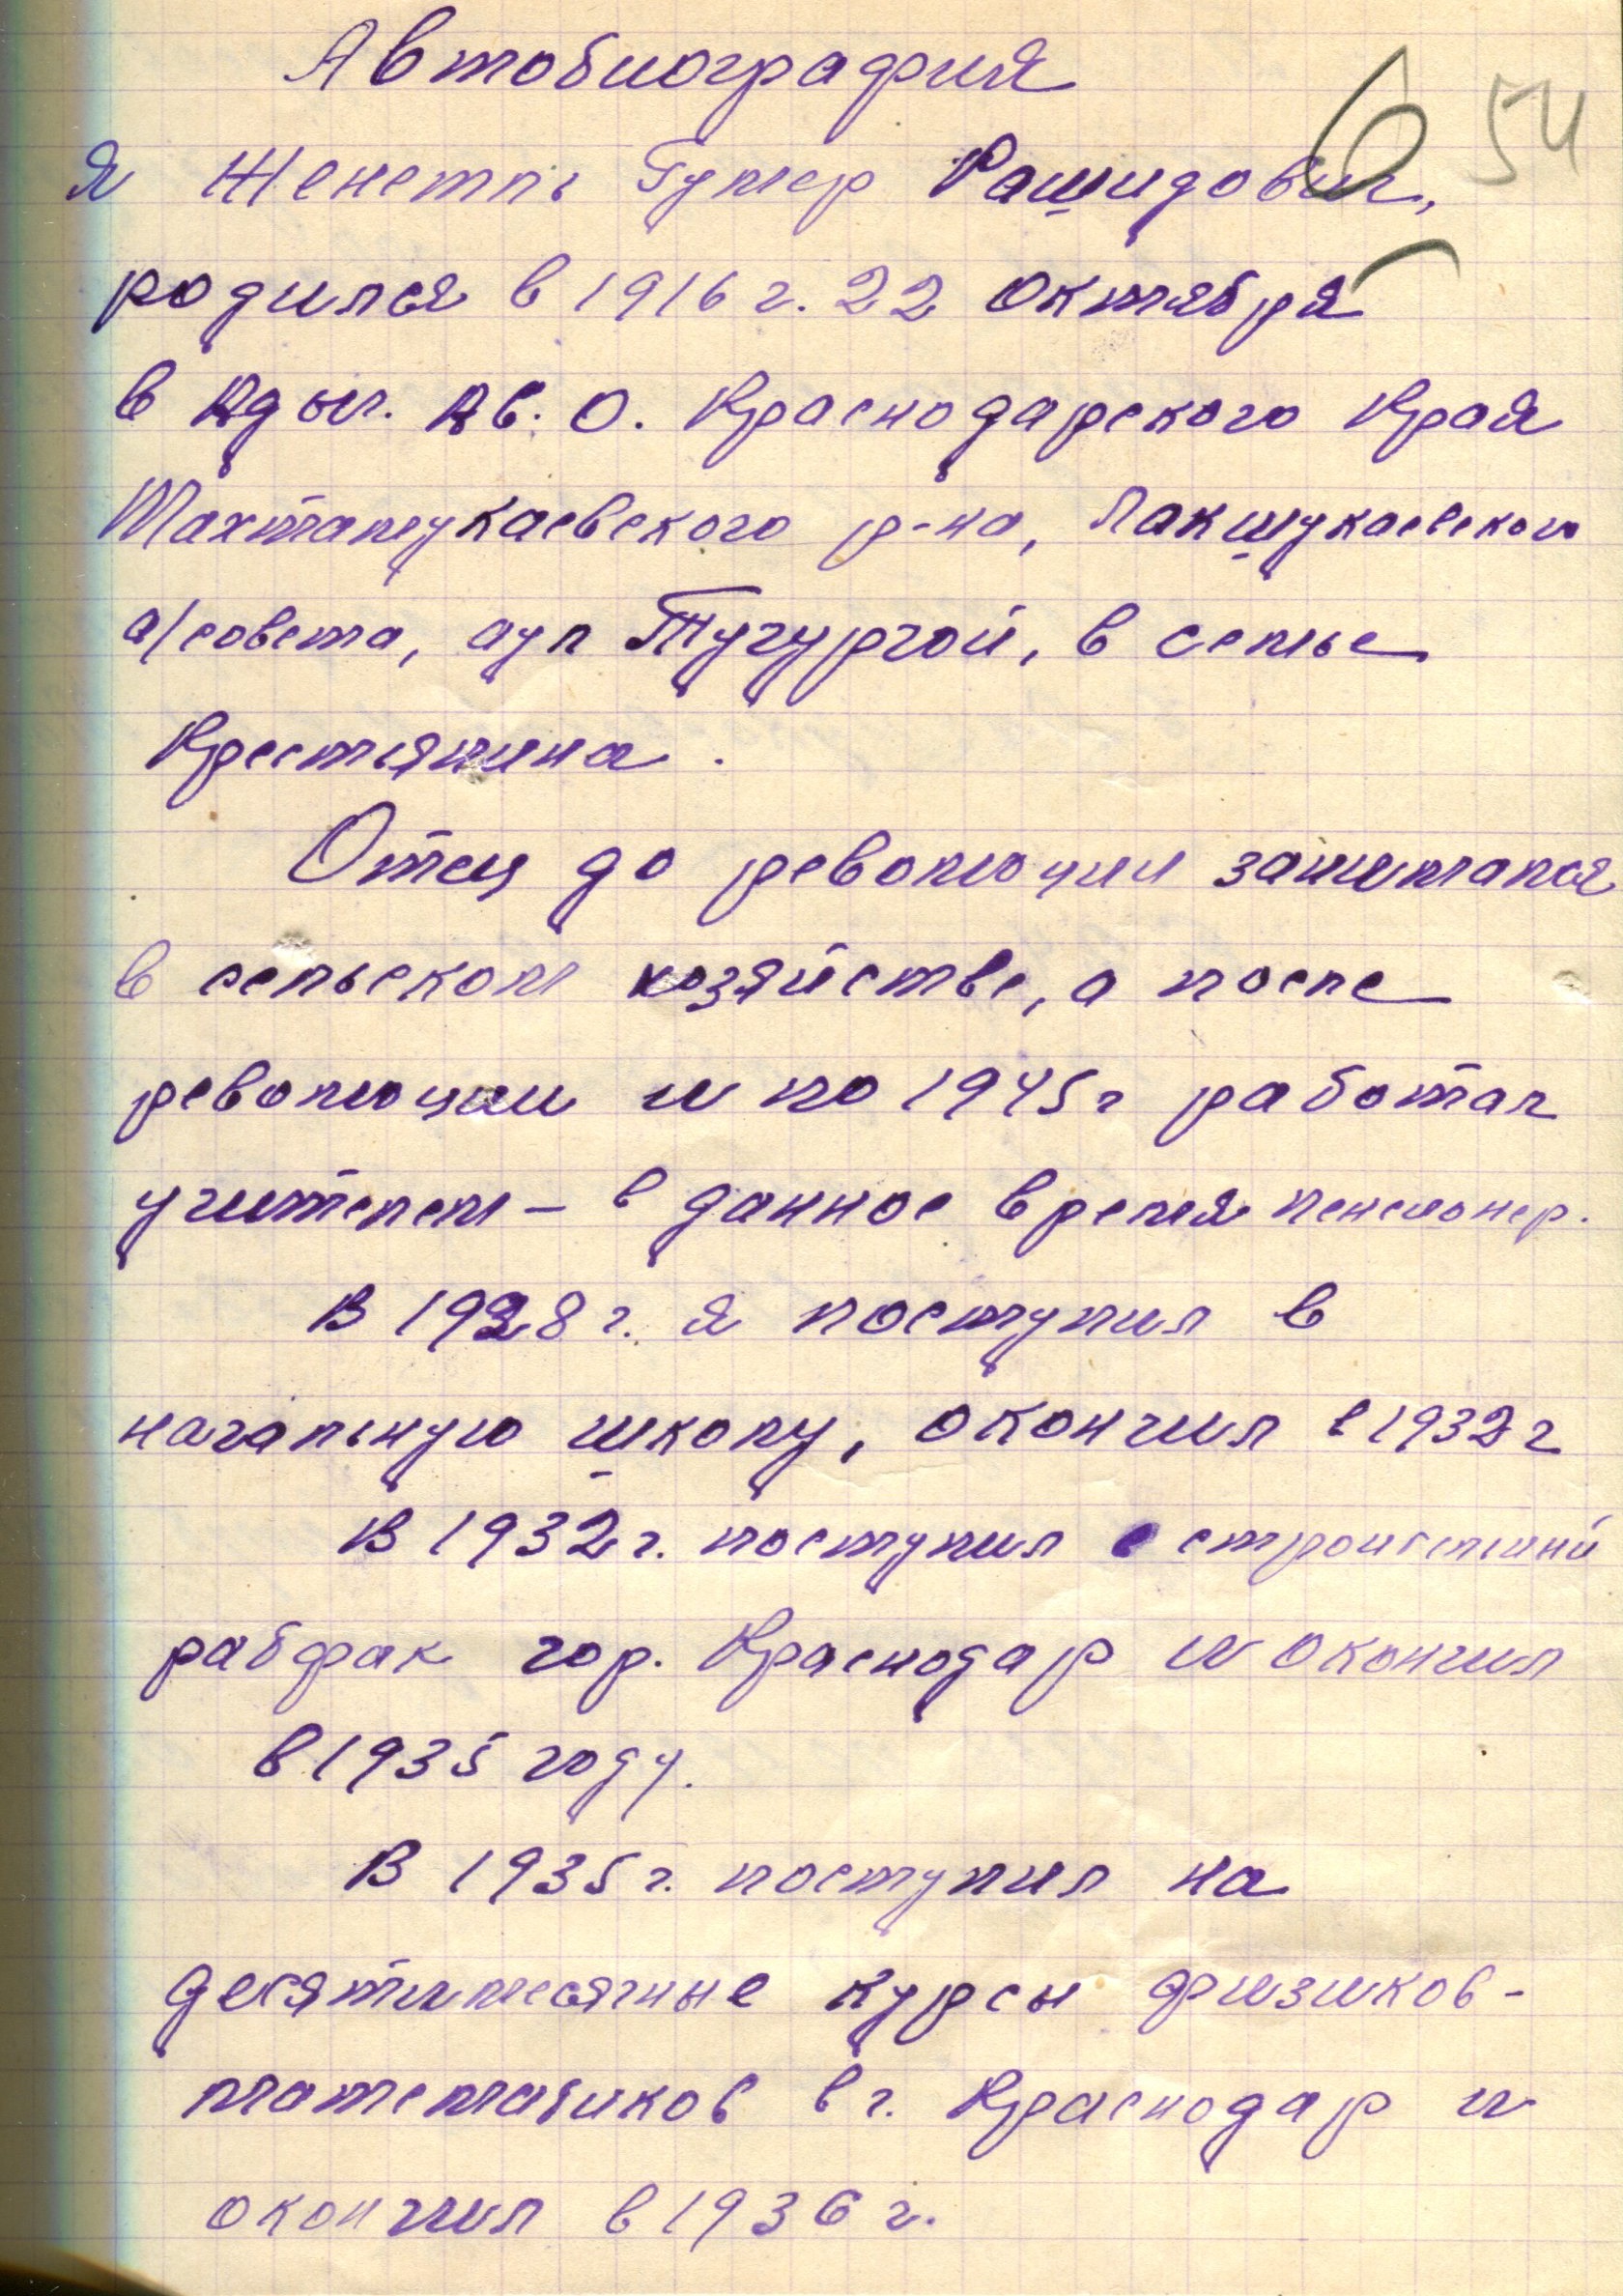 Автобиография
6 54
Я Женетль Гумер Рашидович,
родился в 1916 г. 22 октября
в Адыг. Ав. О. Краснодарского Края
Тахтамукаевского р-на, Лакшукаевского
а/совета, аул Тугургой, в семье
Крестянина.
Отец до революции занимался
в сельском хозяйстве, а после
революции и по 1945 г работал
учителем – в данное время пенсионер.
В 1928 г. я поступил в
начальную школу, окончил в 1932 г
В 1932 г. поступил в
рабфак гор. Краснодар и окончил
в 1935 году.
В 1935 г. поступил на
десятимесячные курсы физиков-
математиков в г. Краснодар и
окончил в 1936 г.